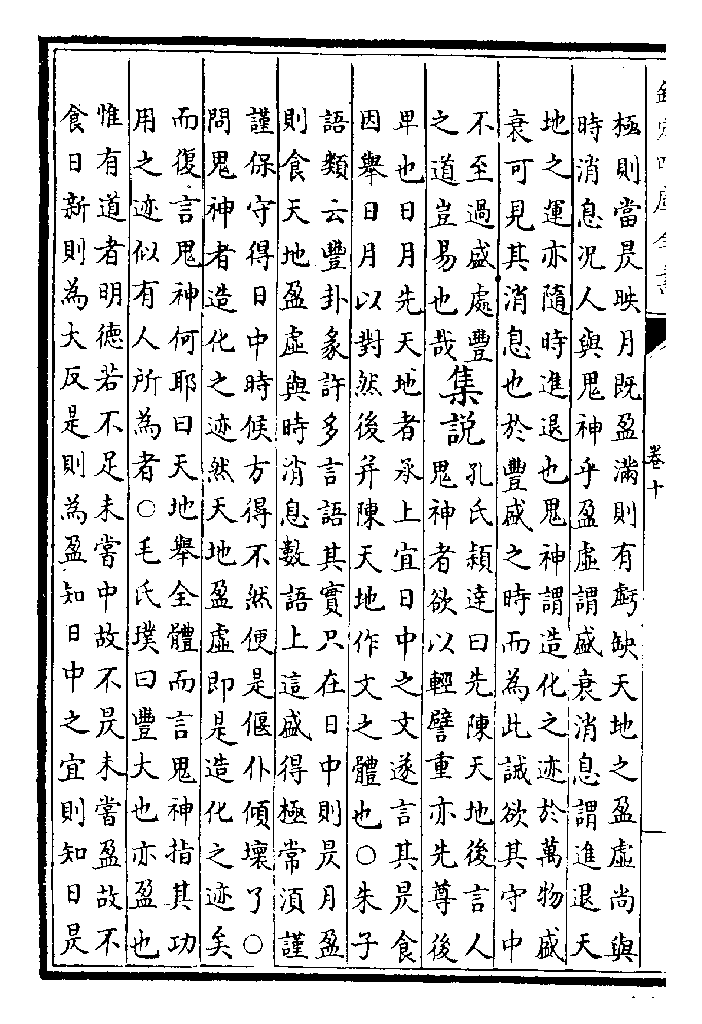 欽定四庫全書
卷十
極則當昃映月既盈滿則有虧缺天地之盈虛尚與
時消息况人與鬼神乎盈虛謂盛衰消息謂進退天
地之運亦隨時進退也鬼神謂造化之迹於萬物盛
衰可見其消息也於豐盛之時而為此誡欲其守中
不至過盛處豐
之道豈易也哉
集說
孔氏穎達曰先陳天地後言人
鬼神者欲以輕譬重亦先尊後
卑也日月先天地者承上宜日中之文遂言其昃食
因舉日月以對然後并陳天地作文之體也○朱子
語類云豐卦彖許多言語其實只在日中則昃月盈
則食天地盈虛與時消息數語上這盛得極常須謹
謹保守得日中時候方得不然便是偃仆傾壞了○
問鬼神者造化之迹然天地盈虛即是造化之迹矣
而復言鬼神何耶曰天地舉全體而言鬼神指其功
用之迹似有人所為者○毛氏璞曰豐大也亦盈也
惟有道者明德若不足未嘗中故不昃未嘗盈故不
食日新則為大反是則為盈知日中之宜則知日昃